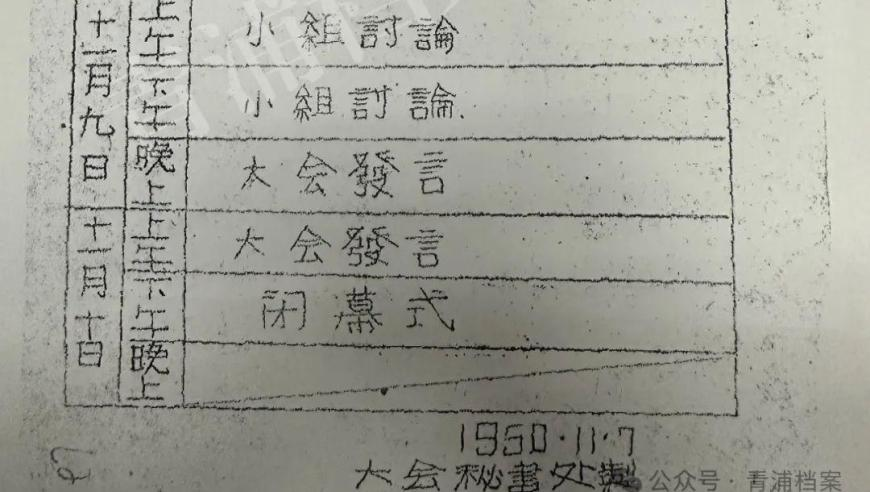 十一月九日
上午 小組討論
下午 小組討論
晚上 大会發言
十一月十日
上午 大会發言
下午 闭幕式
晚上
1950·11·7
大会秘書处製
公众号·青浦档案